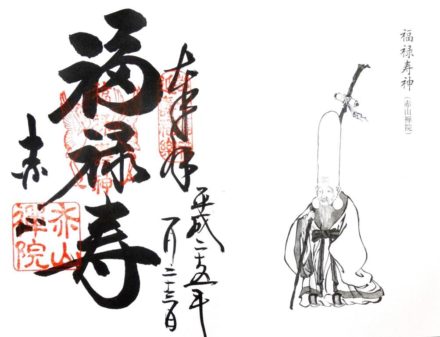 福禄寿神
(赤山禅院)
奉拝
平成二十五年
一月二十三日
福禄寿
赤
赤山
禅院